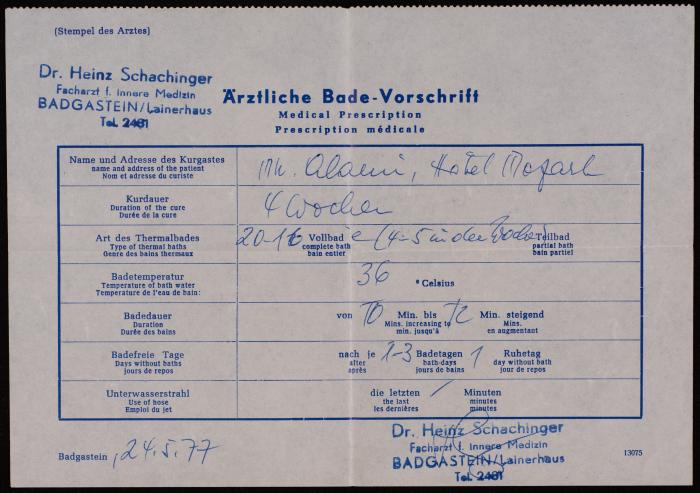 (Stempel des Arztes)
Dr. Heinz Schachinger
Facharzt f. innere Medizin
BADGASTEIN/Lainerhaus
Tel. 2481
Ärztliche Bade-Vorschrift
Medical Prescription
Prescription médicale
Name und Adresse des Kurgastes
name and address of the patient
Nom et adresse du curiste
Alami, Hotel Mozart
Kurdauer
Duration of the cure
Durée de la cure
4 Wochen
Art des Thermalbades
Type of thermal baths
Genre des bains thermaux
20-16 Vollbad e (4-5 in der Woche) Teilbad
complete bath partial bath
bain entier bain partiel
Badetemperatur
Temperature of bath water
Temperature de l'eau de bain:
36 ° Celsius
Badedauer
Duration
Durée des bains
von 10 Min. bis 12 Min. steigend
Mins. increasing to Mins.
min. jusqu'à en augmentant
Badefreie Tage
Days without baths
jours de repos
nach je 1-3 Badetagen 1 Ruhetag
after bath-days day without bath
après jours de bains jour de repos
Unterwasserstrahl
Use of hose
Emploi du jet
die letzten / Minuten
the last minutes
les dernières minutes
Dr. Heinz Schachinger
Facharzt f. innere Medizin
BADGASTEIN/Lainerhaus
Tel. 2481
Badgastein, 24.5.77
13075